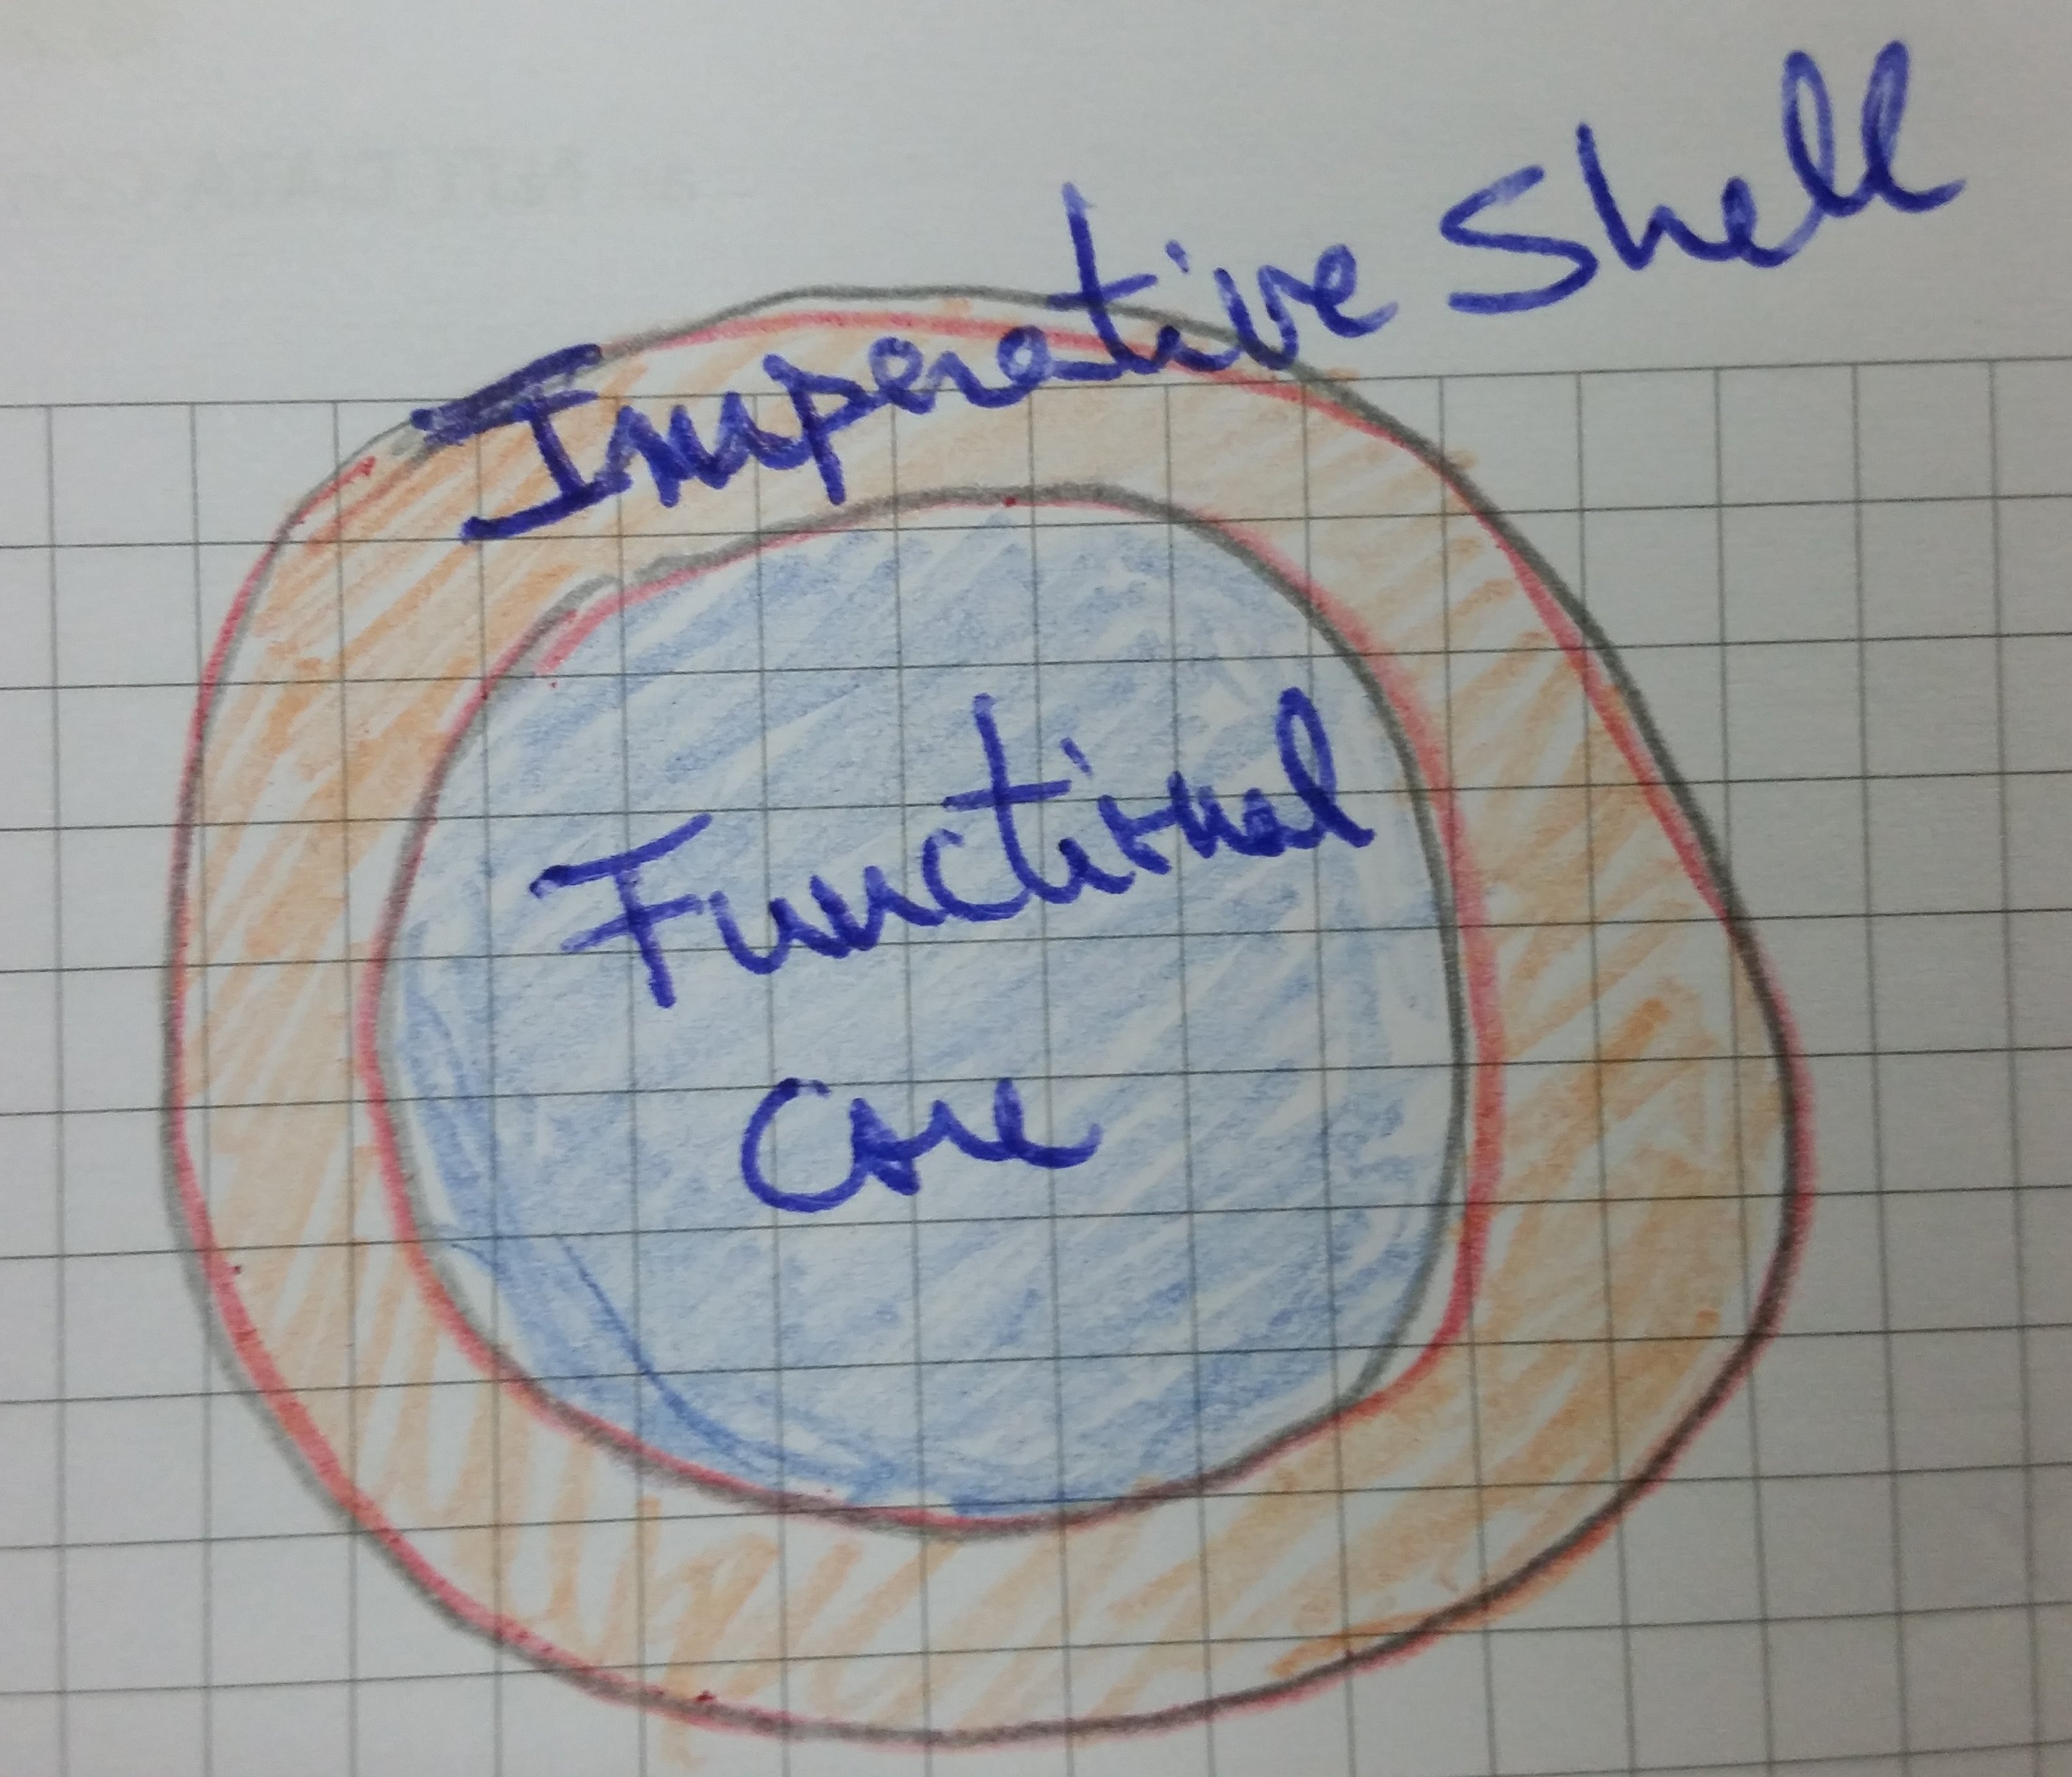 Imperative Shell
Functional
Core